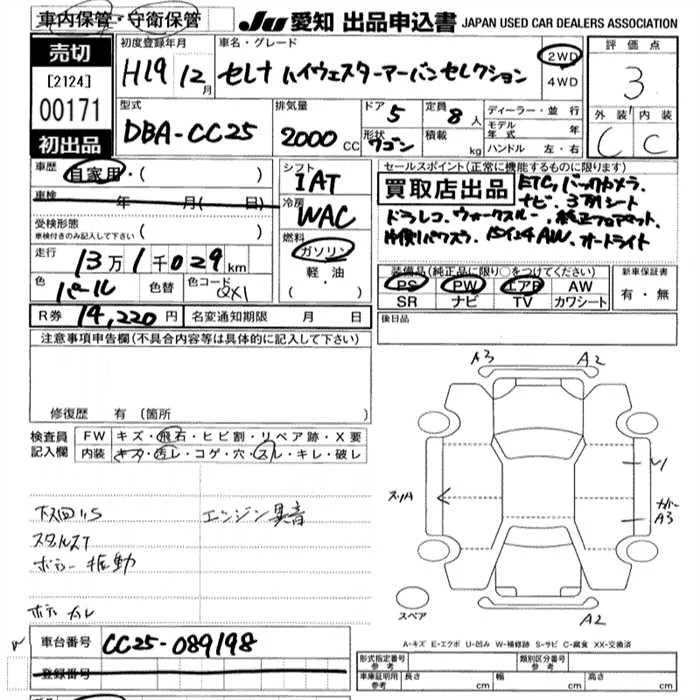 車内保管・守衛保管
JU 愛知 出品申込書 JAPAN USED CAR DEALERS ASSOCIATION
売切
[2124]
00171
初出品
初度登録年月
H19 12月
車名・グレード
セレナ ハイウェスターアーバンセレクション
2WD
4WD
評価点
3
外装 内装
C C
型式
DBA-CC25
排気量
2000 CC
ドア 5
形状 ワゴン
定員 8人
積載 kg
ディーラー・並行
モデル年式 年
ハンドル 左・右
車歴 自家用・( )
車検 年 月( 日)
受検形態
車検付きのみ記入して下さい ( )
走行 13万1千029km
色 パール 色替 色コード QX1
シフト
IAT
冷房
WAC
燃料
ガソリン
軽・油
・( )
セールスポイント(正常に機能するものに限ります)
買取店出品
ETC、バックカメラ、
ナビ、3列シート
ドラレコ、ウォークスルー、純正フロアマット、
片側パワスラ、15インチAW、オートライト
装備品(純正品に限り○をつけてください)
PS PW エアB AW
SR ナビ TV カワシート
新車保証書
有・無
R券 14,220円 名変通知期限 月 日
後日品
注意事項申告欄(不具合内容等は具体的に記入して下さい)
修復歴 有(箇所
検査員記入欄
FW キズ・飛石・ヒビ割・リペア跡・X要
内装 キズ・汚レ・コゲ・穴・スレ・キレ・破レ
下回りS
エンジン異音
ボデー振動
A3 A2
スリA
A3
A2
スペア
A-キズ E-エクボ U-凹み W-補修跡 S-サビ C-腐食 XX-交換済
車台番号 CC25-089198
登録番号
形式指定番号 参考
類別区分番号 参考
車庫証明用 参考 長さ cm 幅 cm 高さ cm